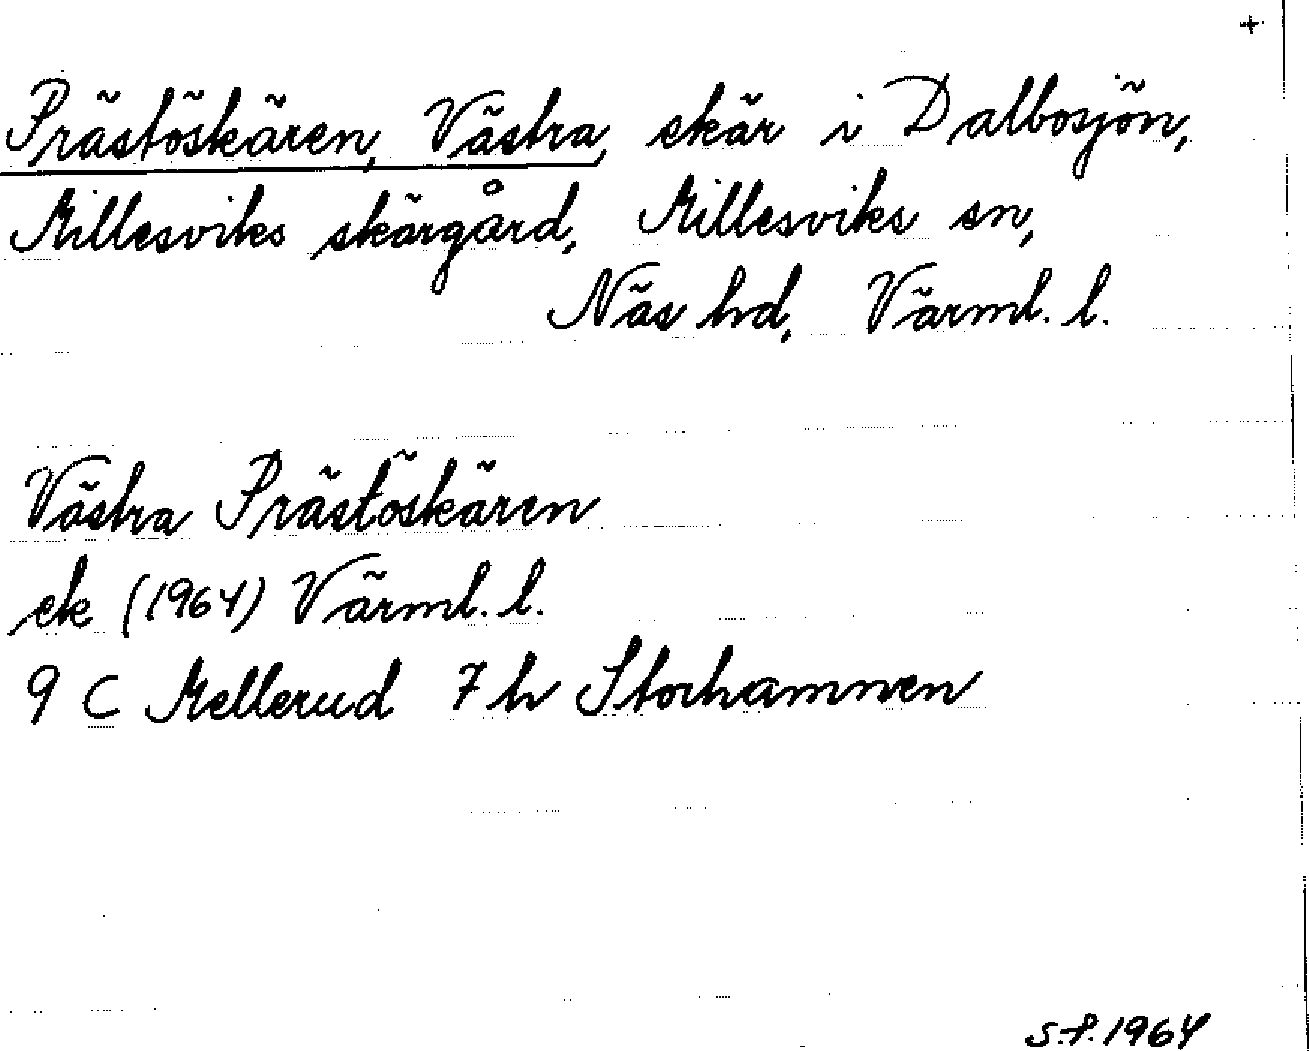 +
Prästöskären, Västra, skär i Dalbosjön,
Millesviks skärgård, Millesviks sn,
Näs hd, Värml. l.
Västra Prästöskären
ek (1964) Värml. l.
9 C Mellerud 7 h Storhamnen
S.F. 1964